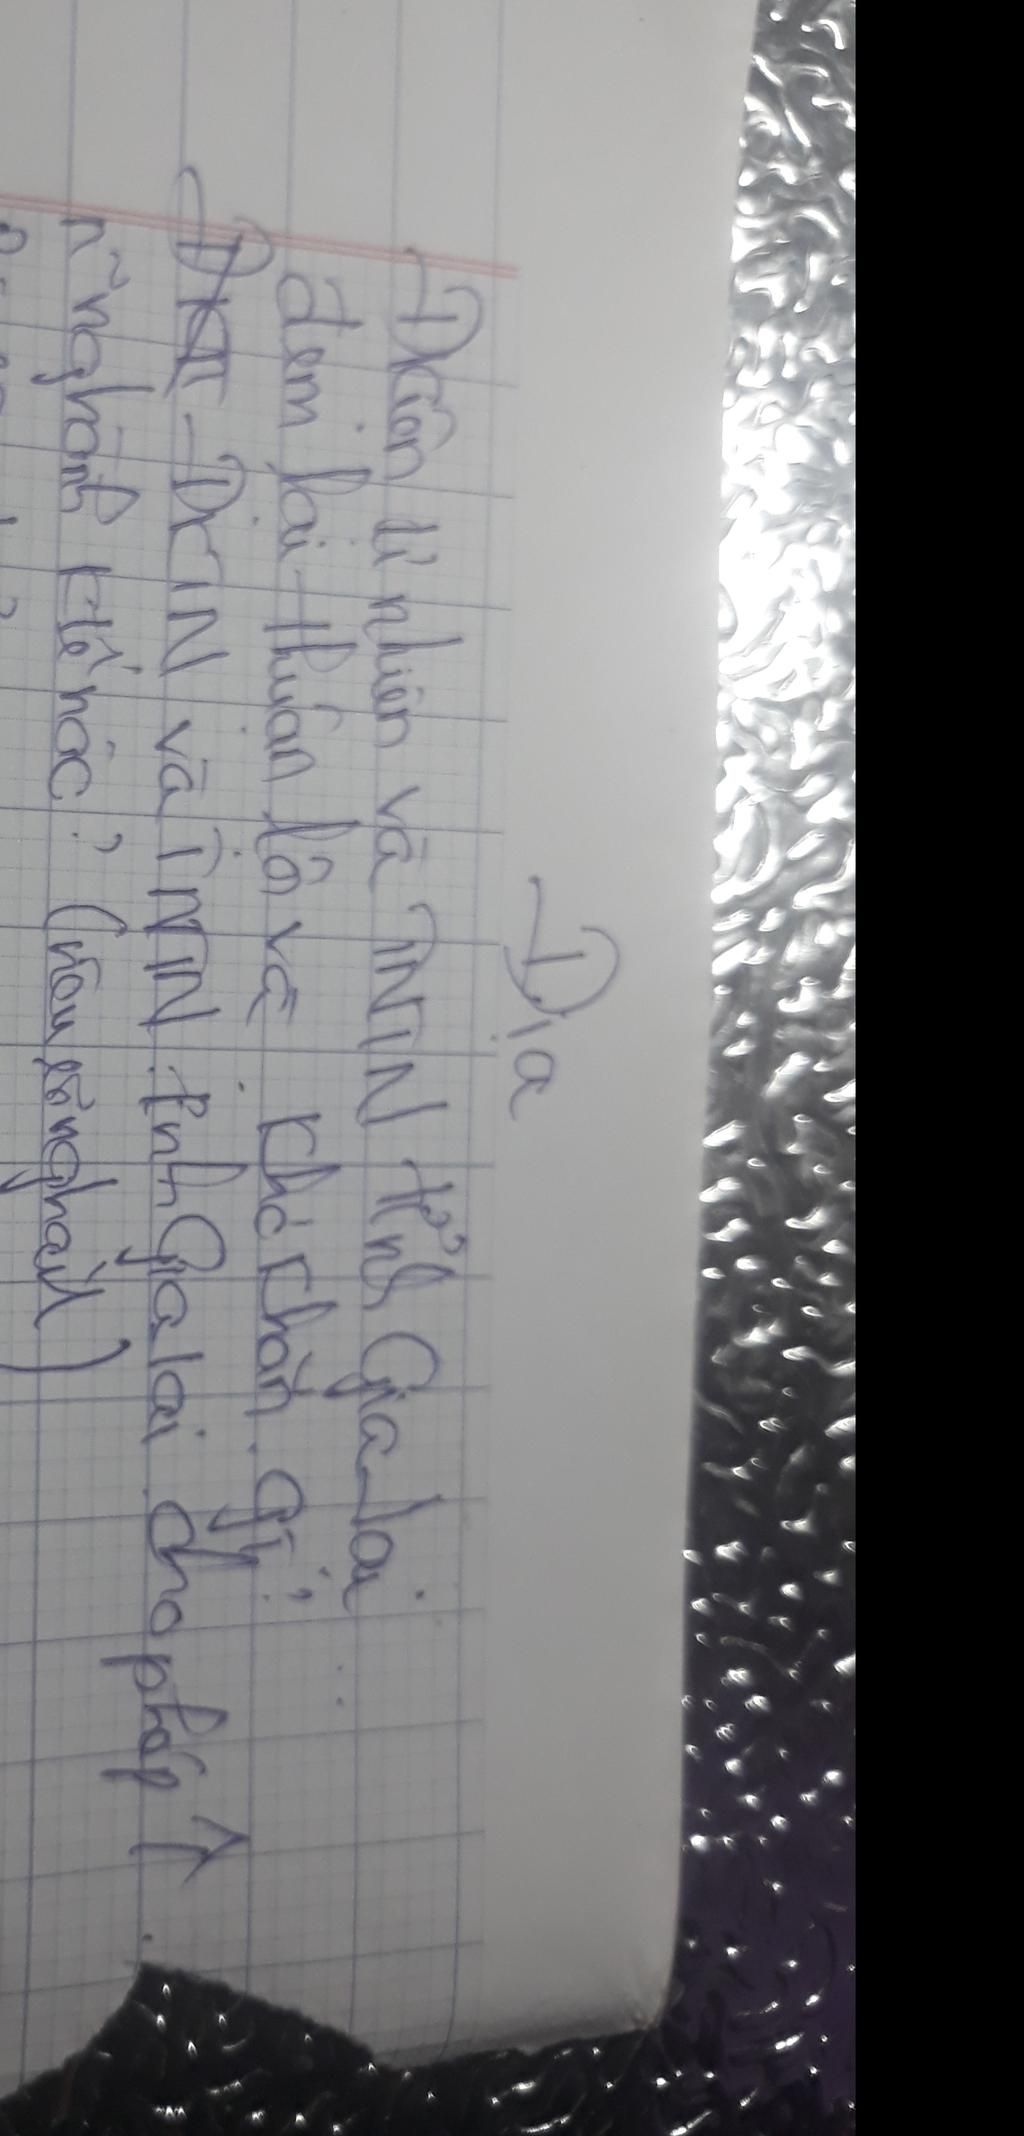 Địa
ĐKiện tự nhiên và TNTN tỉnh Gia Lai
đem lại thuận lợi và khó khăn gì?
ĐKTN và TNTN tỉnh Gia lai cho phép ↑
n~ nghành ktế nào? (nêu rõ nghành)